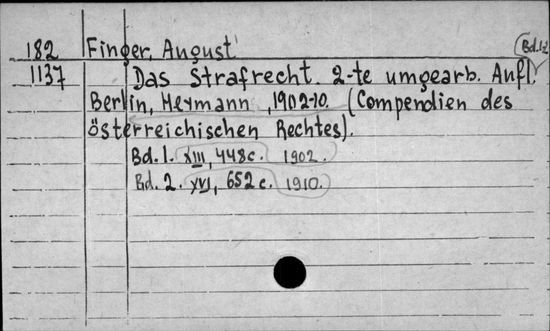 Bd.1-2
182 Finger, August
1137 Das Strafrecht. 2-te umgearb. Aufl.
Berlin, Heymann, 1902-10. (Compendien des
österreichischen Rechtes).
Bd. 1. XIII, 448 c. 1902.
Bd. 2. XVI, 652 c. 1910.